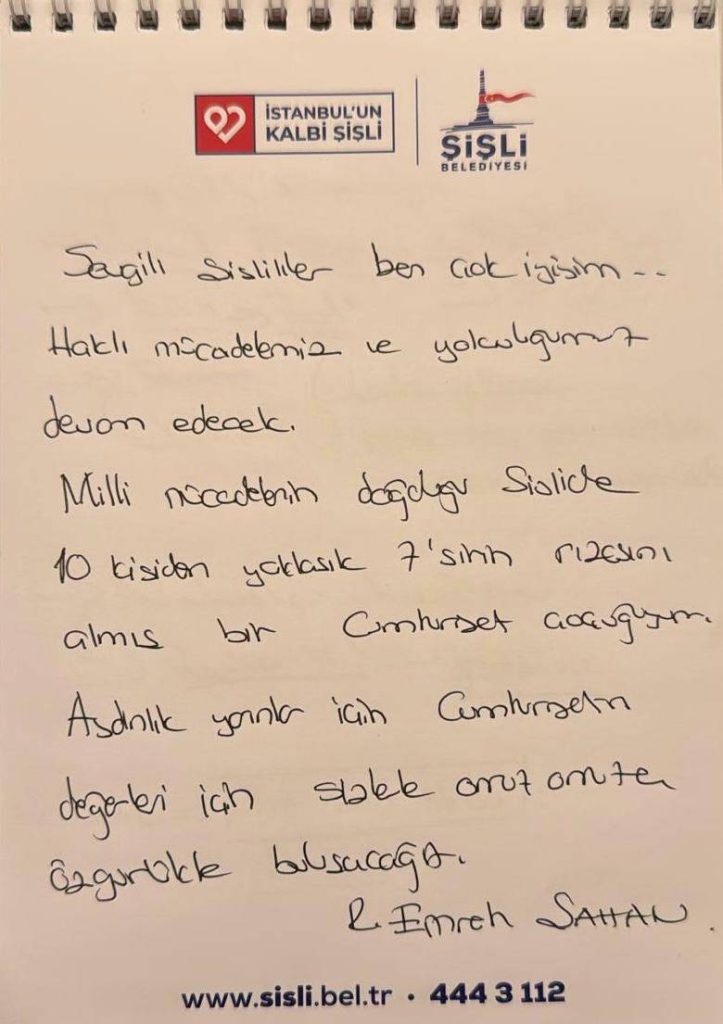 İSTANBUL'UN
KALBİ ŞİŞLİ
ŞİŞLİ
BELEDİYESİ
Sevgili Şişlililer ben çok iyiyim...
Haklı mücadelemiz ve yolculuğumuz
devam edecek.
Milli mücadelenin doğduğu Şişlide
10 kişiden yaklaşık 7'sinin rızasını
almış bir Cumhuriyet çocuğuyum.
Aydınlık yarınlar için Cumhuriyetin
değerleri için sizlerle omuz omuza
özgürlükle buluşacağız.
R. Emrah ŞAHAN.
www.sisli.bel.tr • 444 3 112